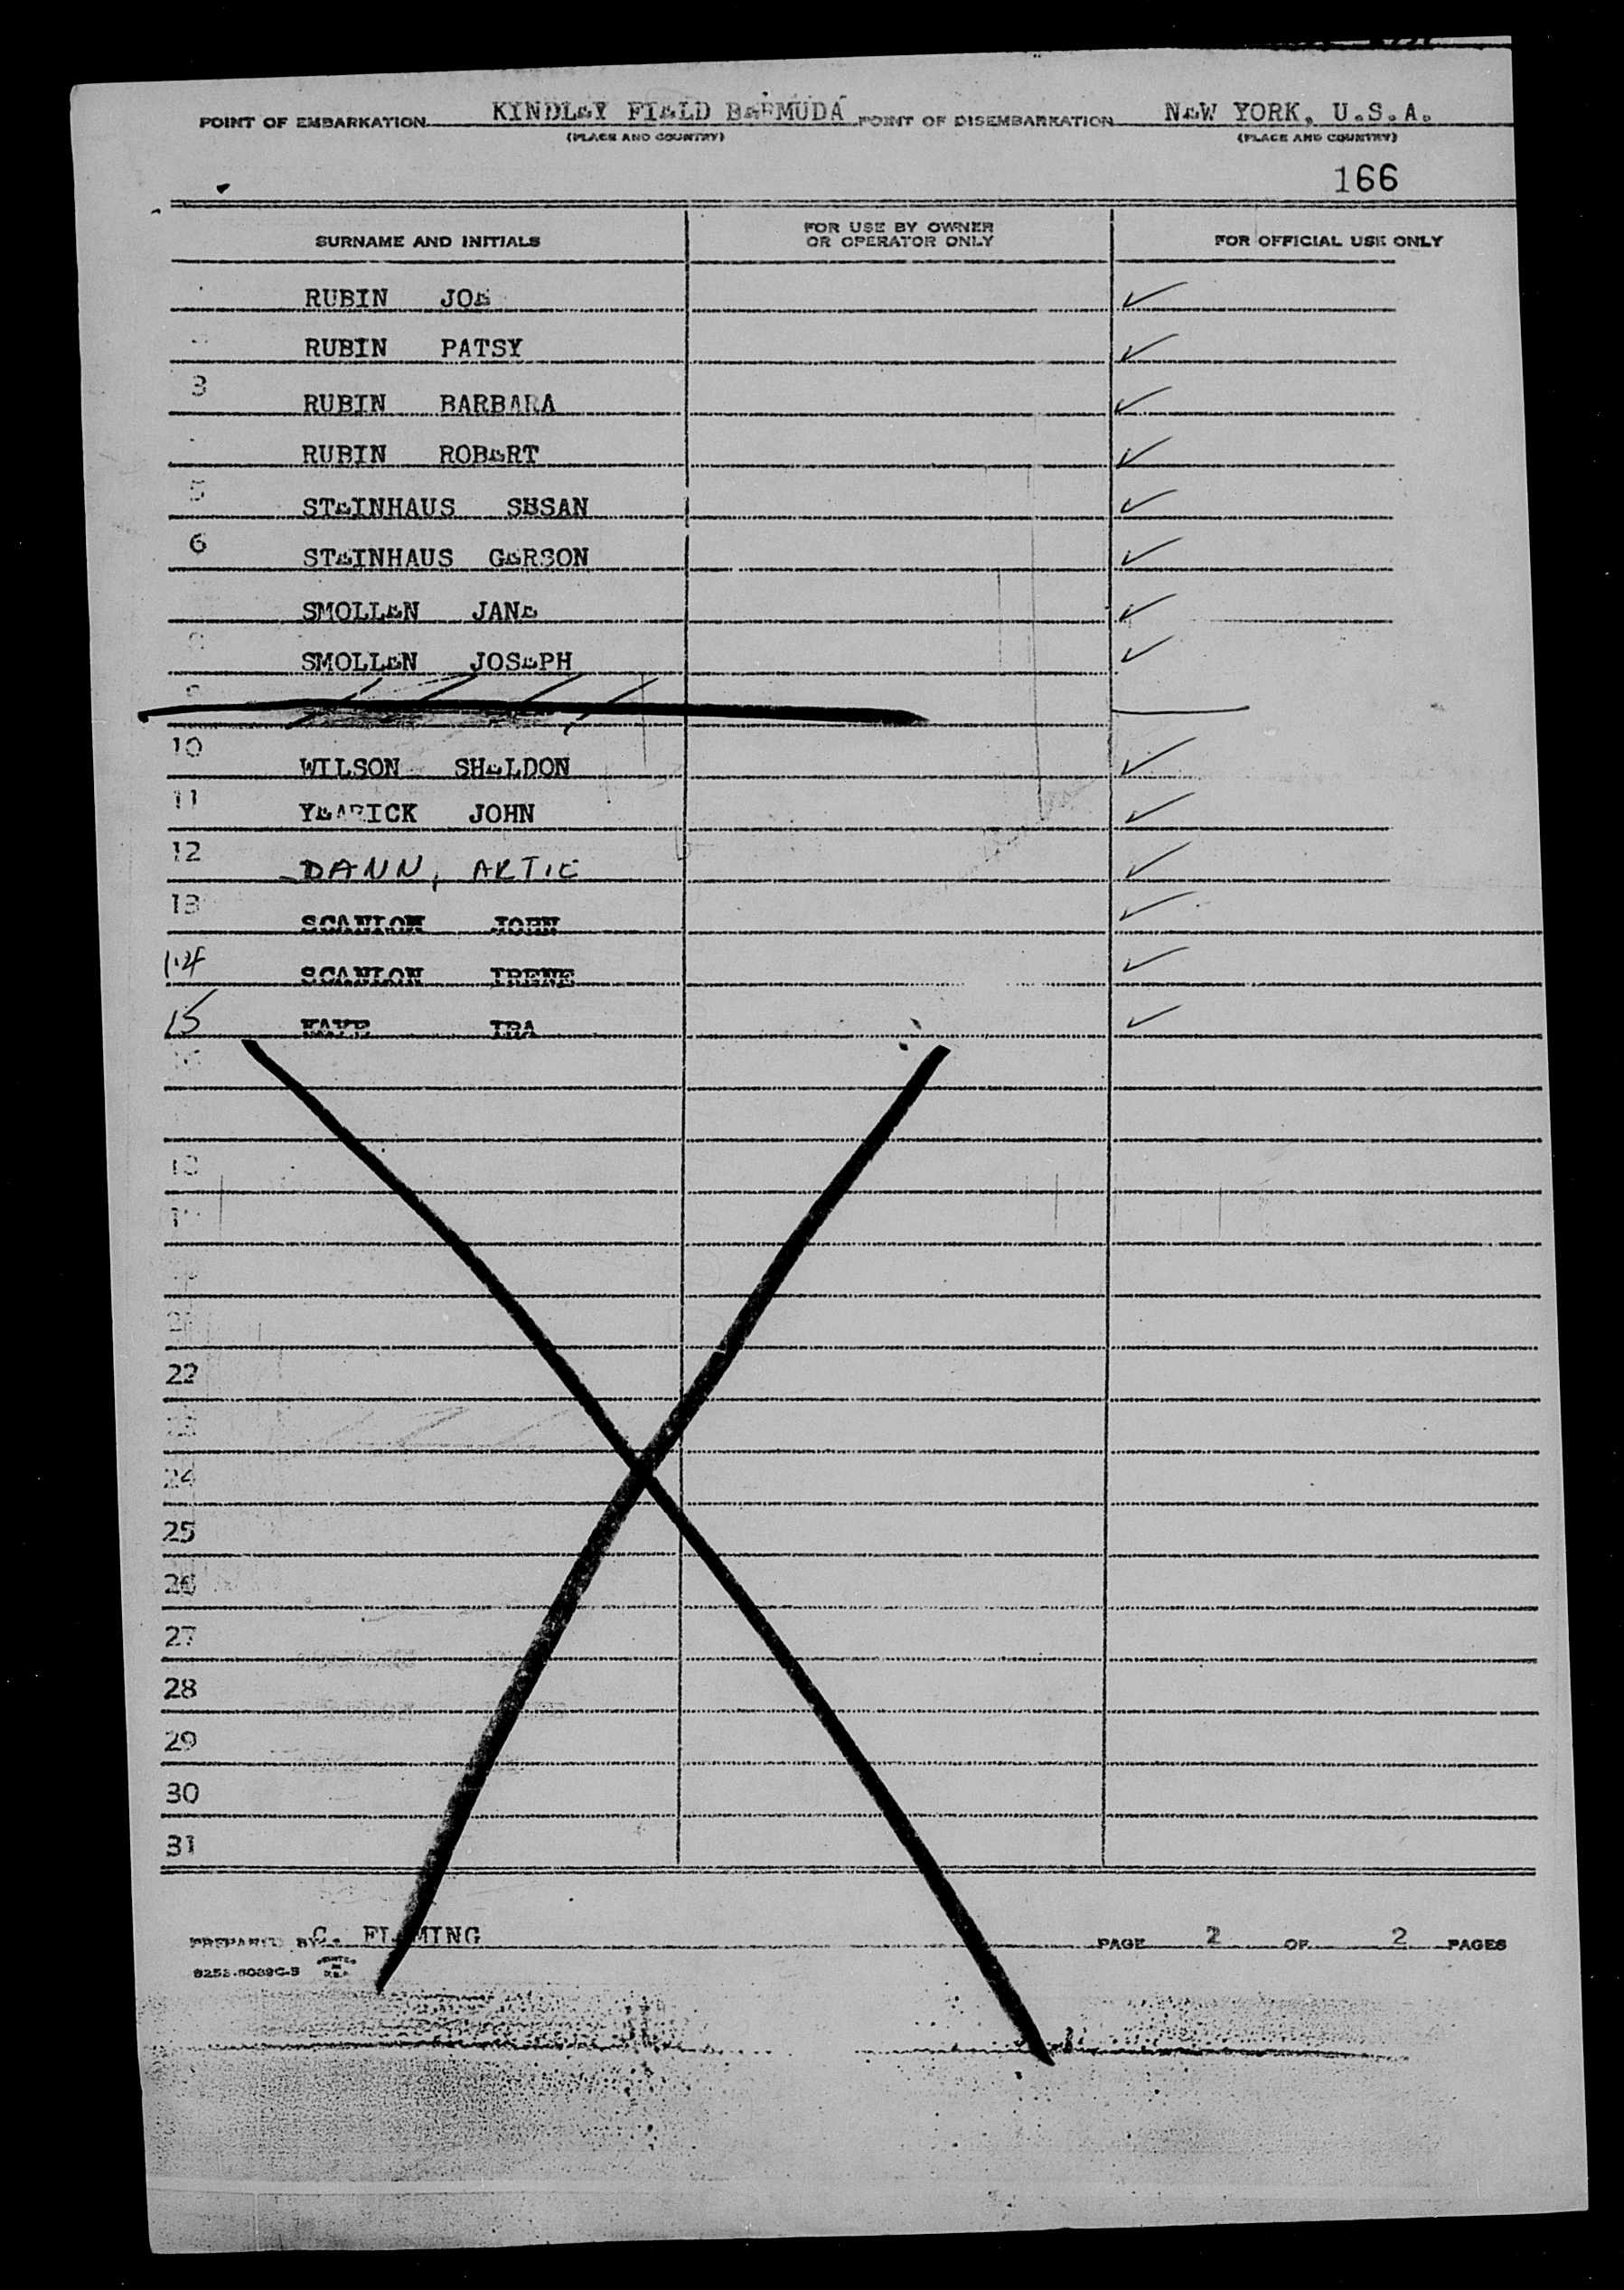 POINT OF EMBARKATION KINDLEY FIELD BERMUDA POINT OF DISEMBARKATION NEW YORK, U.S.A.
(PLACE AND COUNTRY) (PLACE AND COUNTRY)
166
SURNAME AND INITIALS FOR USE BY OWNER OR OPERATOR ONLY FOR OFFICIAL USE ONLY
RUBIN JOE
RUBIN PATSY
3 RUBIN BARBARA
RUBIN ROBERT
5 STEINHAUS SUSAN
6 STEINHAUS GERSON
SMOLLEN JANE
SMOLLEN JOSEPH
10 WILSON SHELDON
11 YEARICK JOHN
12 DANN, ARTIE
13 SCANLON JOHN
14 SCANLON IRENE
15 KAYE IRA
22
24
25
26
27
28
29
30
31
PREPARED BY C. FLEMING PAGE 2 OF 2 PAGES